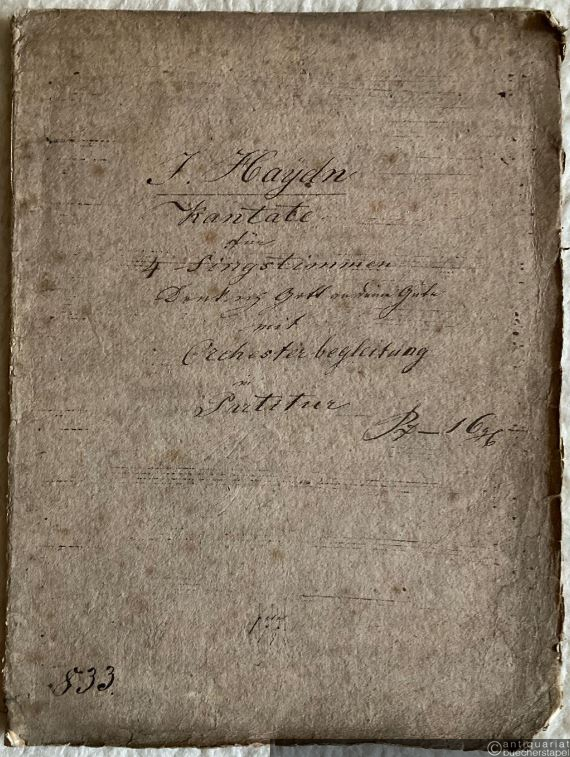 J. Haydn
Kantate
für
4 Singstimmen
Denk ich Gott an deine Güte
mit
Orchesterbegleitung
in
Partitur
16
833.
antiquariat
buecherstapel